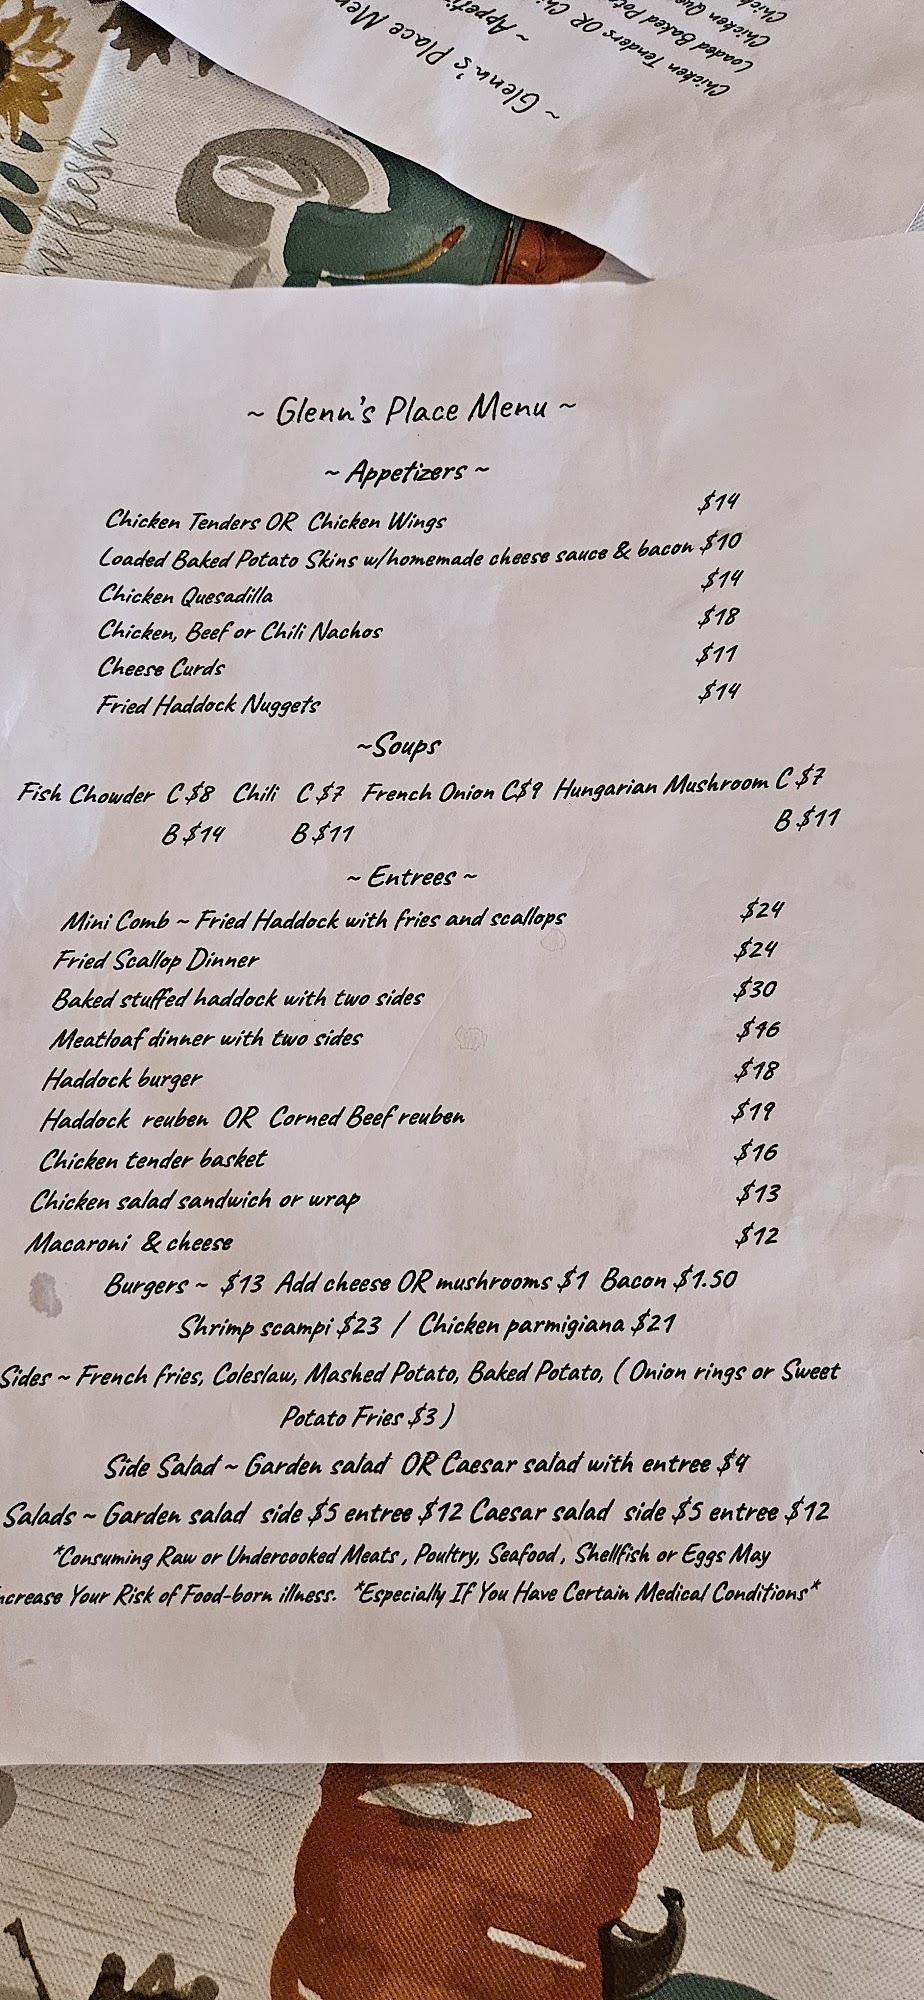 ~ Glenn's Place Me
~ Appeti
Chicken Tenders OR Ch
Loaded Baked Pot
Chicken Que
Chick
m fresh
~ Glenn's Place Menu ~
~ Appetizers ~
Chicken Tenders OR Chicken Wings $14
Loaded Baked Potato Skins w/homemade cheese sauce & bacon $10
Chicken Quesadilla $14
Chicken, Beef or Chili Nachos $18
Cheese Curds $11
Fried Haddock Nuggets $14
~Soups
Fish Chowder C $8 Chili C $7 French Onion C$9 Hungarian Mushroom C $7
B $14 B $11 B $11
~ Entrees ~
Mini Comb ~ Fried Haddock with fries and scallops $24
Fried Scallop Dinner $24
Baked stuffed haddock with two sides $30
Meatloaf dinner with two sides
Haddock burger $18
Haddock reuben OR Corned Beef reuben $19
Chicken tender basket $16
Chicken salad sandwich or wrap $13
Macaroni & cheese $12
Burgers ~ $13 Add cheese OR mushrooms $1 Bacon $1.50
Shrimp scampi $23 / Chicken parmigiana $21
Sides ~ French fries, Coleslaw, Mashed Potato, Baked Potato, ( Onion rings or Sweet
Potato Fries $3 )
Side Salad ~ Garden salad OR Caesar salad with entree $4
Salads ~ Garden salad side $5 entree $12 Caesar salad side $5 entree $12
*Consuming Raw or Undercooked Meats , Poultry, Seafood , Shellfish or Eggs May
ncrease Your Risk of Food-born illness. *Especially If You Have Certain Medical Conditions*